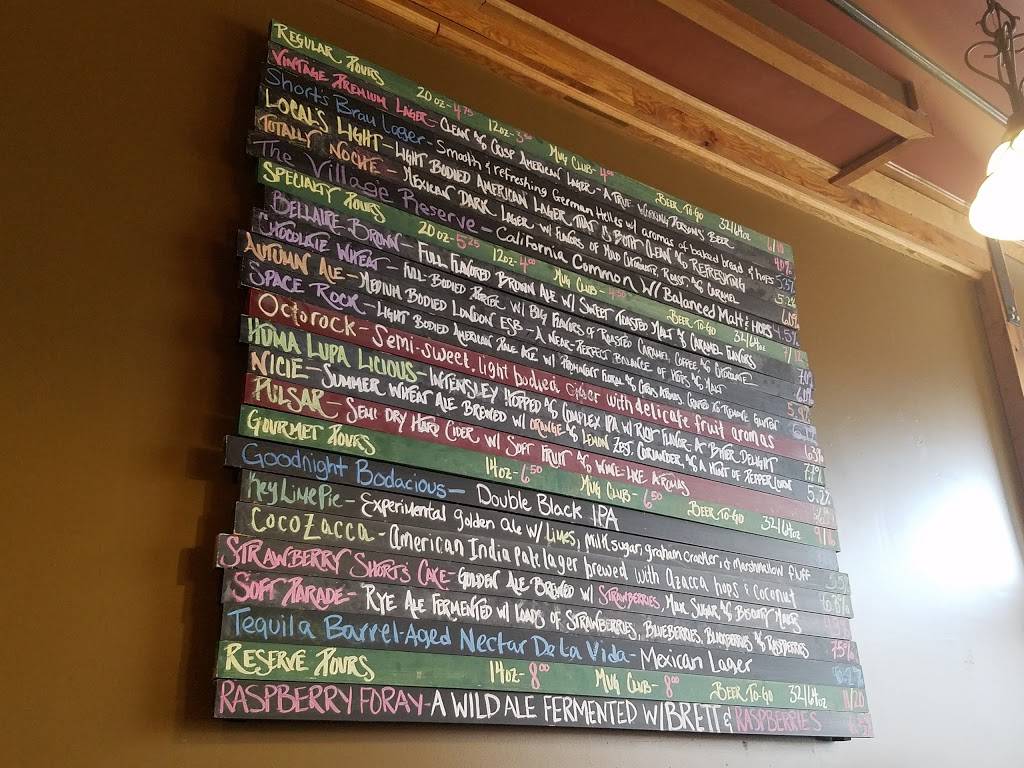 REGULAR POURS 20oz- 4.75 12oz- MUG CLUB- 4.00 BEER-TO-GO 32/64oz
VINTAGE PREMIUM LAGER- CLEAN & CRISP AMERICAN LAGER- A TRUE WORKING PERSONS BEER
Shorts Brau Lager- Smooth & refreshing German Helles w/ aromas of baked bread & hops
LOCALS LIGHT- LIGHT BODIED AMERICAN LAGER THAT IS BOTH CLEAN & REFRESHING 5.2%
TOTALLY NOCHE- MEXICAN DARK LAGER W/ FLAVORS OF MILD CHOCOLATE, ROAST & CARAMEL
The Village Reserve- California Common w/ Balanced Malt & HOPS 4.5%
SPECIALTY POURS 20oz- 5.25 12oz- 4.00 MUG CLUB- 4.50 BEER-TO-GO 32/64oz
BELLAIRE BROWN- FULL FLAVORED BROWN ALE W/ SWEET TOASTED MALT & CARAMEL FLAVORS
CHOCOLATE WHEAT- FULL-BODIED PORTER W/ BIG FLAVORS OF TOASTED CARAMEL, COFFEE & CHOCOLATE
AUTUMN ALE- MEDIUM BODIED LONDON ESB- A NEAR-PERFECT BALANCE OF HOPS & MALT
SPACE ROCK- LIGHT BODIED AMERICAN PALE ALE W/ PROMINENT FLORAL & CITRUS AROMAS. CRAFTED TO REMOVE GLUTEN
Octorock- Semi-sweet, light bodied cider with delicate fruit aromas
HUMA LUPA LICIOUS- INTENSLEY HOPPED & COMPLEX IPA W/ RICH FLAVOR- A BITTER DELIGHT 7.7%
NICIE- SUMMER WHEAT ALE BREWED W/ ORANGE & LEMON ZEST, CORIANDER, & A HINT OF PEPPERCORN 5.2%
PULSAR- SEMI DRY HARD CIDER W/ SOFT FRUIT & WINE-LIKE AROMAS
GOURMET POURS 14oz- 6.50 MUG CLUB- 6.50 BEER-TO-GO 32/64oz
Goodnight Bodacious- Double Black IPA
Key Lime Pie- Experimental golden ale w/ Limes, milk sugar, graham cracker, & Marshmallow fluff
COCOZACCA- American India pale lager brewed with azacca hops & coconut
STRAWBERRY SHORTS CAKE- GOLDEN ALE BREWED W/ STRAWBERRIES, MILK SUGAR, & BISCUITY MALTS
SOFT PARADE- RYE ALE FERMENTED W/ LOADS OF STRAWBERRIES, BLUEBERRIES, BLACKBERRIES & RASPBERRIES 7.5%
Tequila Barrel-Aged Nectar De La Vida- Mexican Lager
RESERVE POURS 14oz- 8.00 MUG CLUB- 8.00 BEER-TO-GO 32/64oz
RASPBERRY FORAY- A WILD ALE FERMENTED W/ BRETT & RASPBERRIES